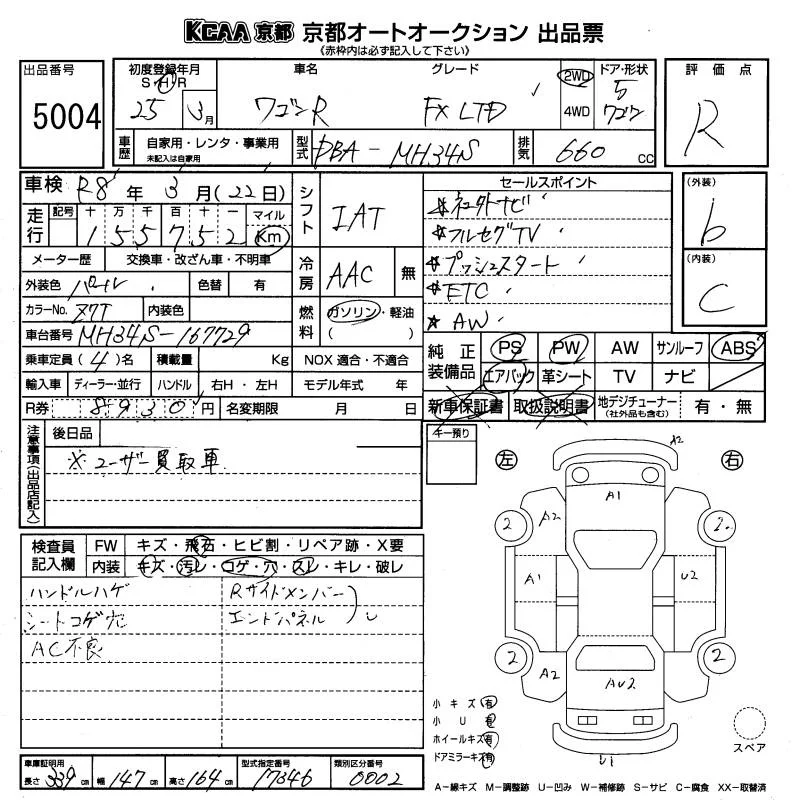 KCAA 京都 京都オートオークション 出品票
《赤枠内は必ず記入して下さい》
出品番号
5004
初度登録年月
S・H・R
25 3月
車名
ワゴンR
グレード
FX LTD
2WD
4WD
ドア・形状
5
ワゴン
評価点
R
車歴
自家用・レンタ・事業用
未記入は自家用
型式
DBA-MH34S
排気
660 CC
車検 R8年 3月(22日)
走行
記号 十 万 千 百 十 一 マイル
1 5 5 7 5 2 Km
メーター歴 交換車・改ざん車・不明車
外装色 パール 色替 有
カラーNo. Z7T 内装色
車台番号 MH34S-167729
乗車定員(4)名 積載量 Kg
輸入車 ディーラー・並行 ハンドル 右H・左H
R券 8930円 名変期限 月 日
シフト
IAT
冷房
AAC 無
燃料
ガソリン・軽油
( )
NOX 適合・不適合
モデル年式 年
セールスポイント
★ネクストナビ
★フルセグTV
★プッシュスタート
★ETC
★AW
(外装)
b
(内装)
C
純正装備品
PS PW AW サンルーフ ABS
エアバック 革シート TV ナビ
新車保証書 取扱説明書 地デジチューナー(社外品も含む) 有・無
注意事項(出品店記入)
後日品
※ユーザー買取車
キー預り
検査員記入欄
FW キズ・飛石・ヒビ割・リペア跡・X要
内装 キズ・汚レ・コゲ・穴・スレ・キレ・破レ
ハンドルハゲ
シートコゲ穴
AC不良
Rサイドメンバー
エンドパネル
左
右
A2
A1
2 A2 2
A1 U2
2 A2 AU2 2
U1
小キズ 有
小U 有
ホイールキズ 有
ドアミラーキズ 有
スペア
車庫証明用
長さ 339cm 幅 147cm 高さ 164cm
型式指定番号
17346
類別区分番号
0002
A-線キズ M-調整跡 U-凹み W-補修跡 S-サビ C-腐食 XX-取替済